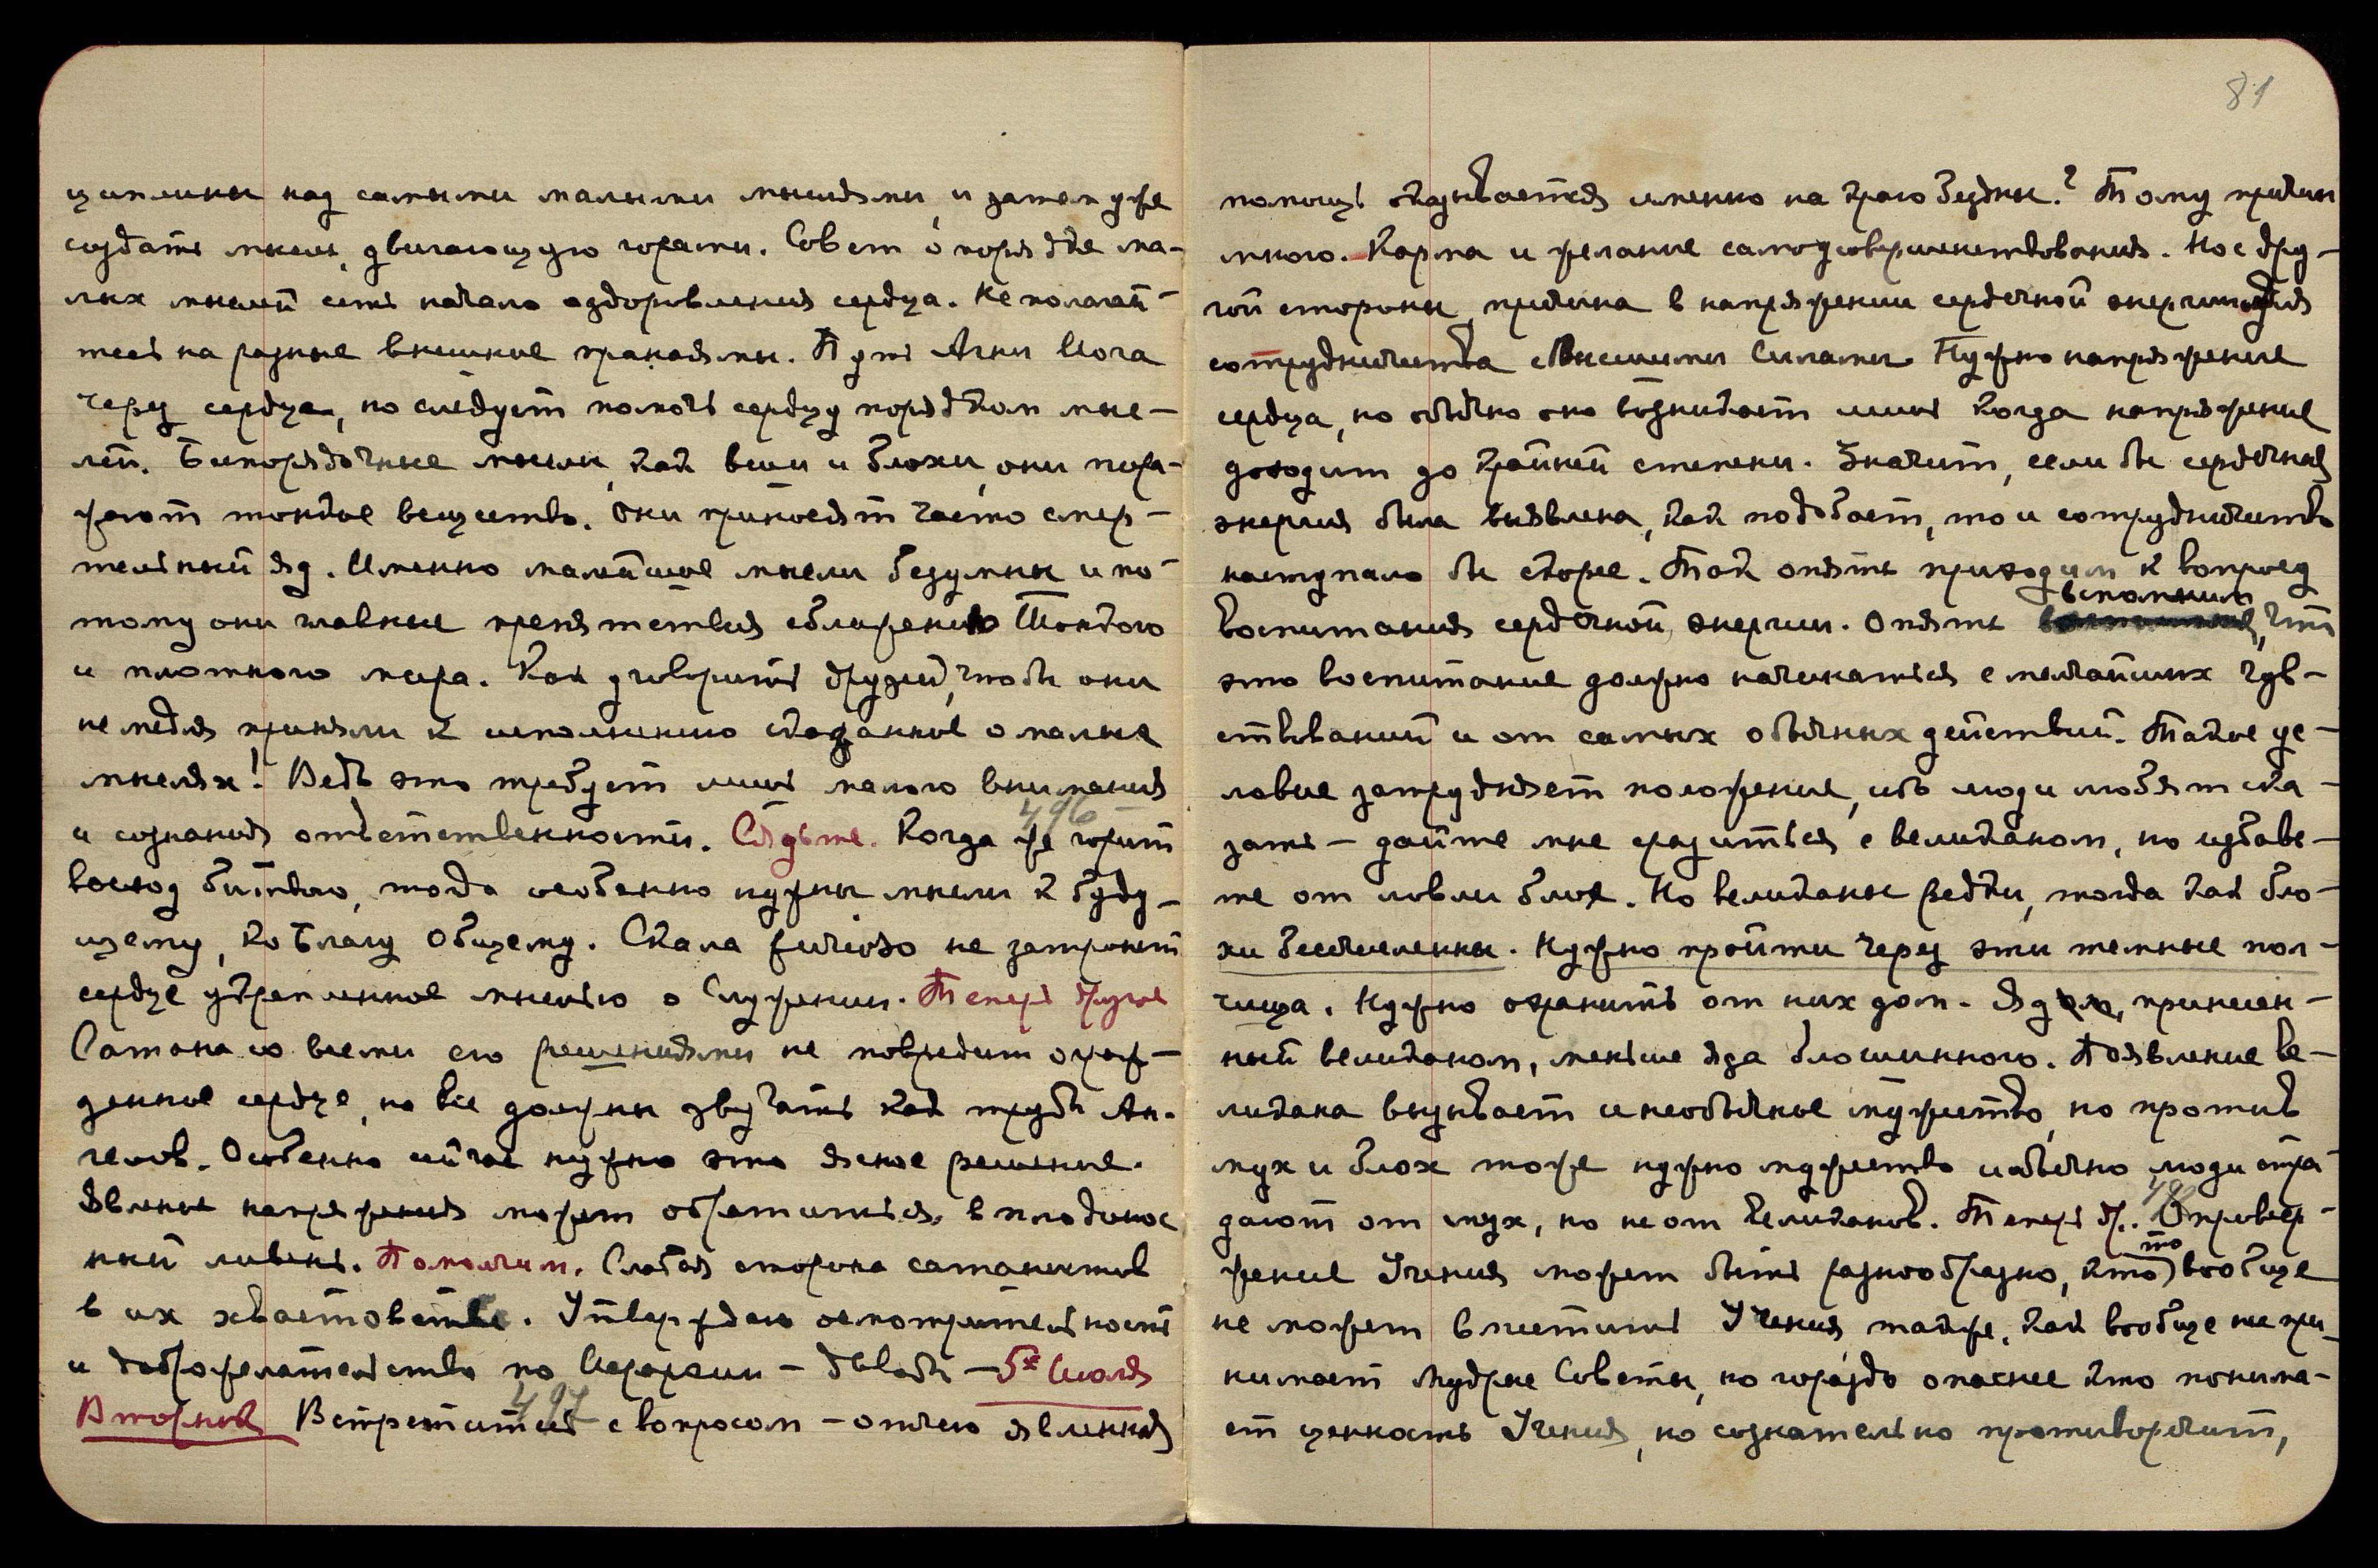 81
циплины над самыми малыми мыслями, и затем уже
создать мысль, двигающую горами. Совет о порядке ма-
лых мыслей есть начало оздоровления сердца. Не полагай-
тесь на разные внешние пранаямы. Путь Агни Йога
через сердце, но следует помочь сердцу порядком мыс-
лей. Беспорядочные мысли, как вши и блохи, они пора-
жают тонкое вещество. Они приносят часто смер-
тельный яд. Именно малейшие мысли безумны и по-
тому они главные препятствия сближению Тонкого
и плотного мира. Как уговорить друзей, чтобы они
не медля приняли к исполнению сказанное о малых
мыслях! Ведь это требует лишь малого внимания
496
и сознания ответственности. Сядьте. Когда же горит
восход битвою, тогда особенно нужны мысли к буду-
щему, ко Благу Общему. Скала furioso не затронет
сердце укрепленное мыслью о Служении. Теперь другое
Сатана со всеми его решениями не повредит ограж-
денное сердце, но все должны звучать как трубы Ан-
гелов. Особенно сейчас нужно это ясное решение.
Явление напряжения может обратиться в плодонос
ный ливень. Помолчим. Слабая сторона сатанистов
в их хвастовстве. Утверждаю осмотрительность
и доброжелательство по Иерархии – довольно – 5е Июля
497
Вторник Встретитесь с вопросом – отчего явленная
помощь оказывается именно на краю бездны? Тому причин
много. Карма и желание самоусовершенствования. Но с дру-
гой стороны, причина в напряжении сердечной энергии для
сотрудничества с Высшими Силами. Нужно напряжение
сердца, но обычно оно возникает лишь когда напряжение
доходит до крайней степени. Значит, если бы сердечная
энергия была выявлена, как подобает, то и сотрудничество
наступало бы скорее. Так опять приходим к вопросу
вспомним
воспитания сердечной энергии. Опять, что
это воспитание должно начинаться с мельчайших чув-
ствований и от самых обычных действий. Такое ус-
ловие затрудняет положение, ибо люди любят ска-
зать – дайте мне сразиться с великаном, но избавь-
те от ловли блох. Но великаны редки, тогда как бло-
хи бесчисленны. Нужно пройти через эти темные пол-
чища. Нужно охранить от них дом. Яд, принесен-
ный великаном, меньше яда блошинного. Появление ве-
ликана вызывает и необычное мужество, но против
мух и блох тоже нужно мужество и обычно люди стра
498
дают от мух, но не от великанов. Теперь др. Опровер-
то
жение Учения может быть разнообразно, кто вообще
не может вместить Учения также, как вообще не при-
нимает Мудрые Советы, но гораздо опаснее кто понима-
ет ценность Учения, но сознательно противоречит,